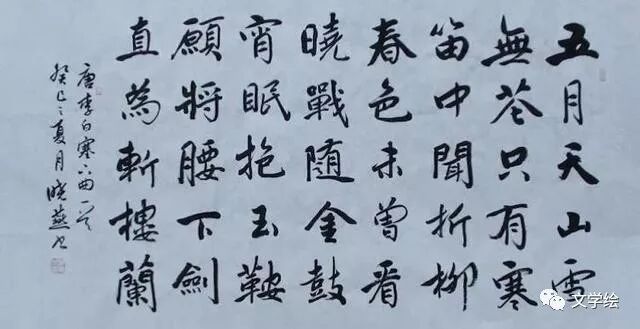 五月天山雪
無花只有寒
笛中聞折柳
春色未曾看
曉戰随金鼓
宵眠抱玉鞍
願將腰下劍
直為斬樓蘭
唐李白塞下曲一首
癸巳之夏月晓燕书
文学绘